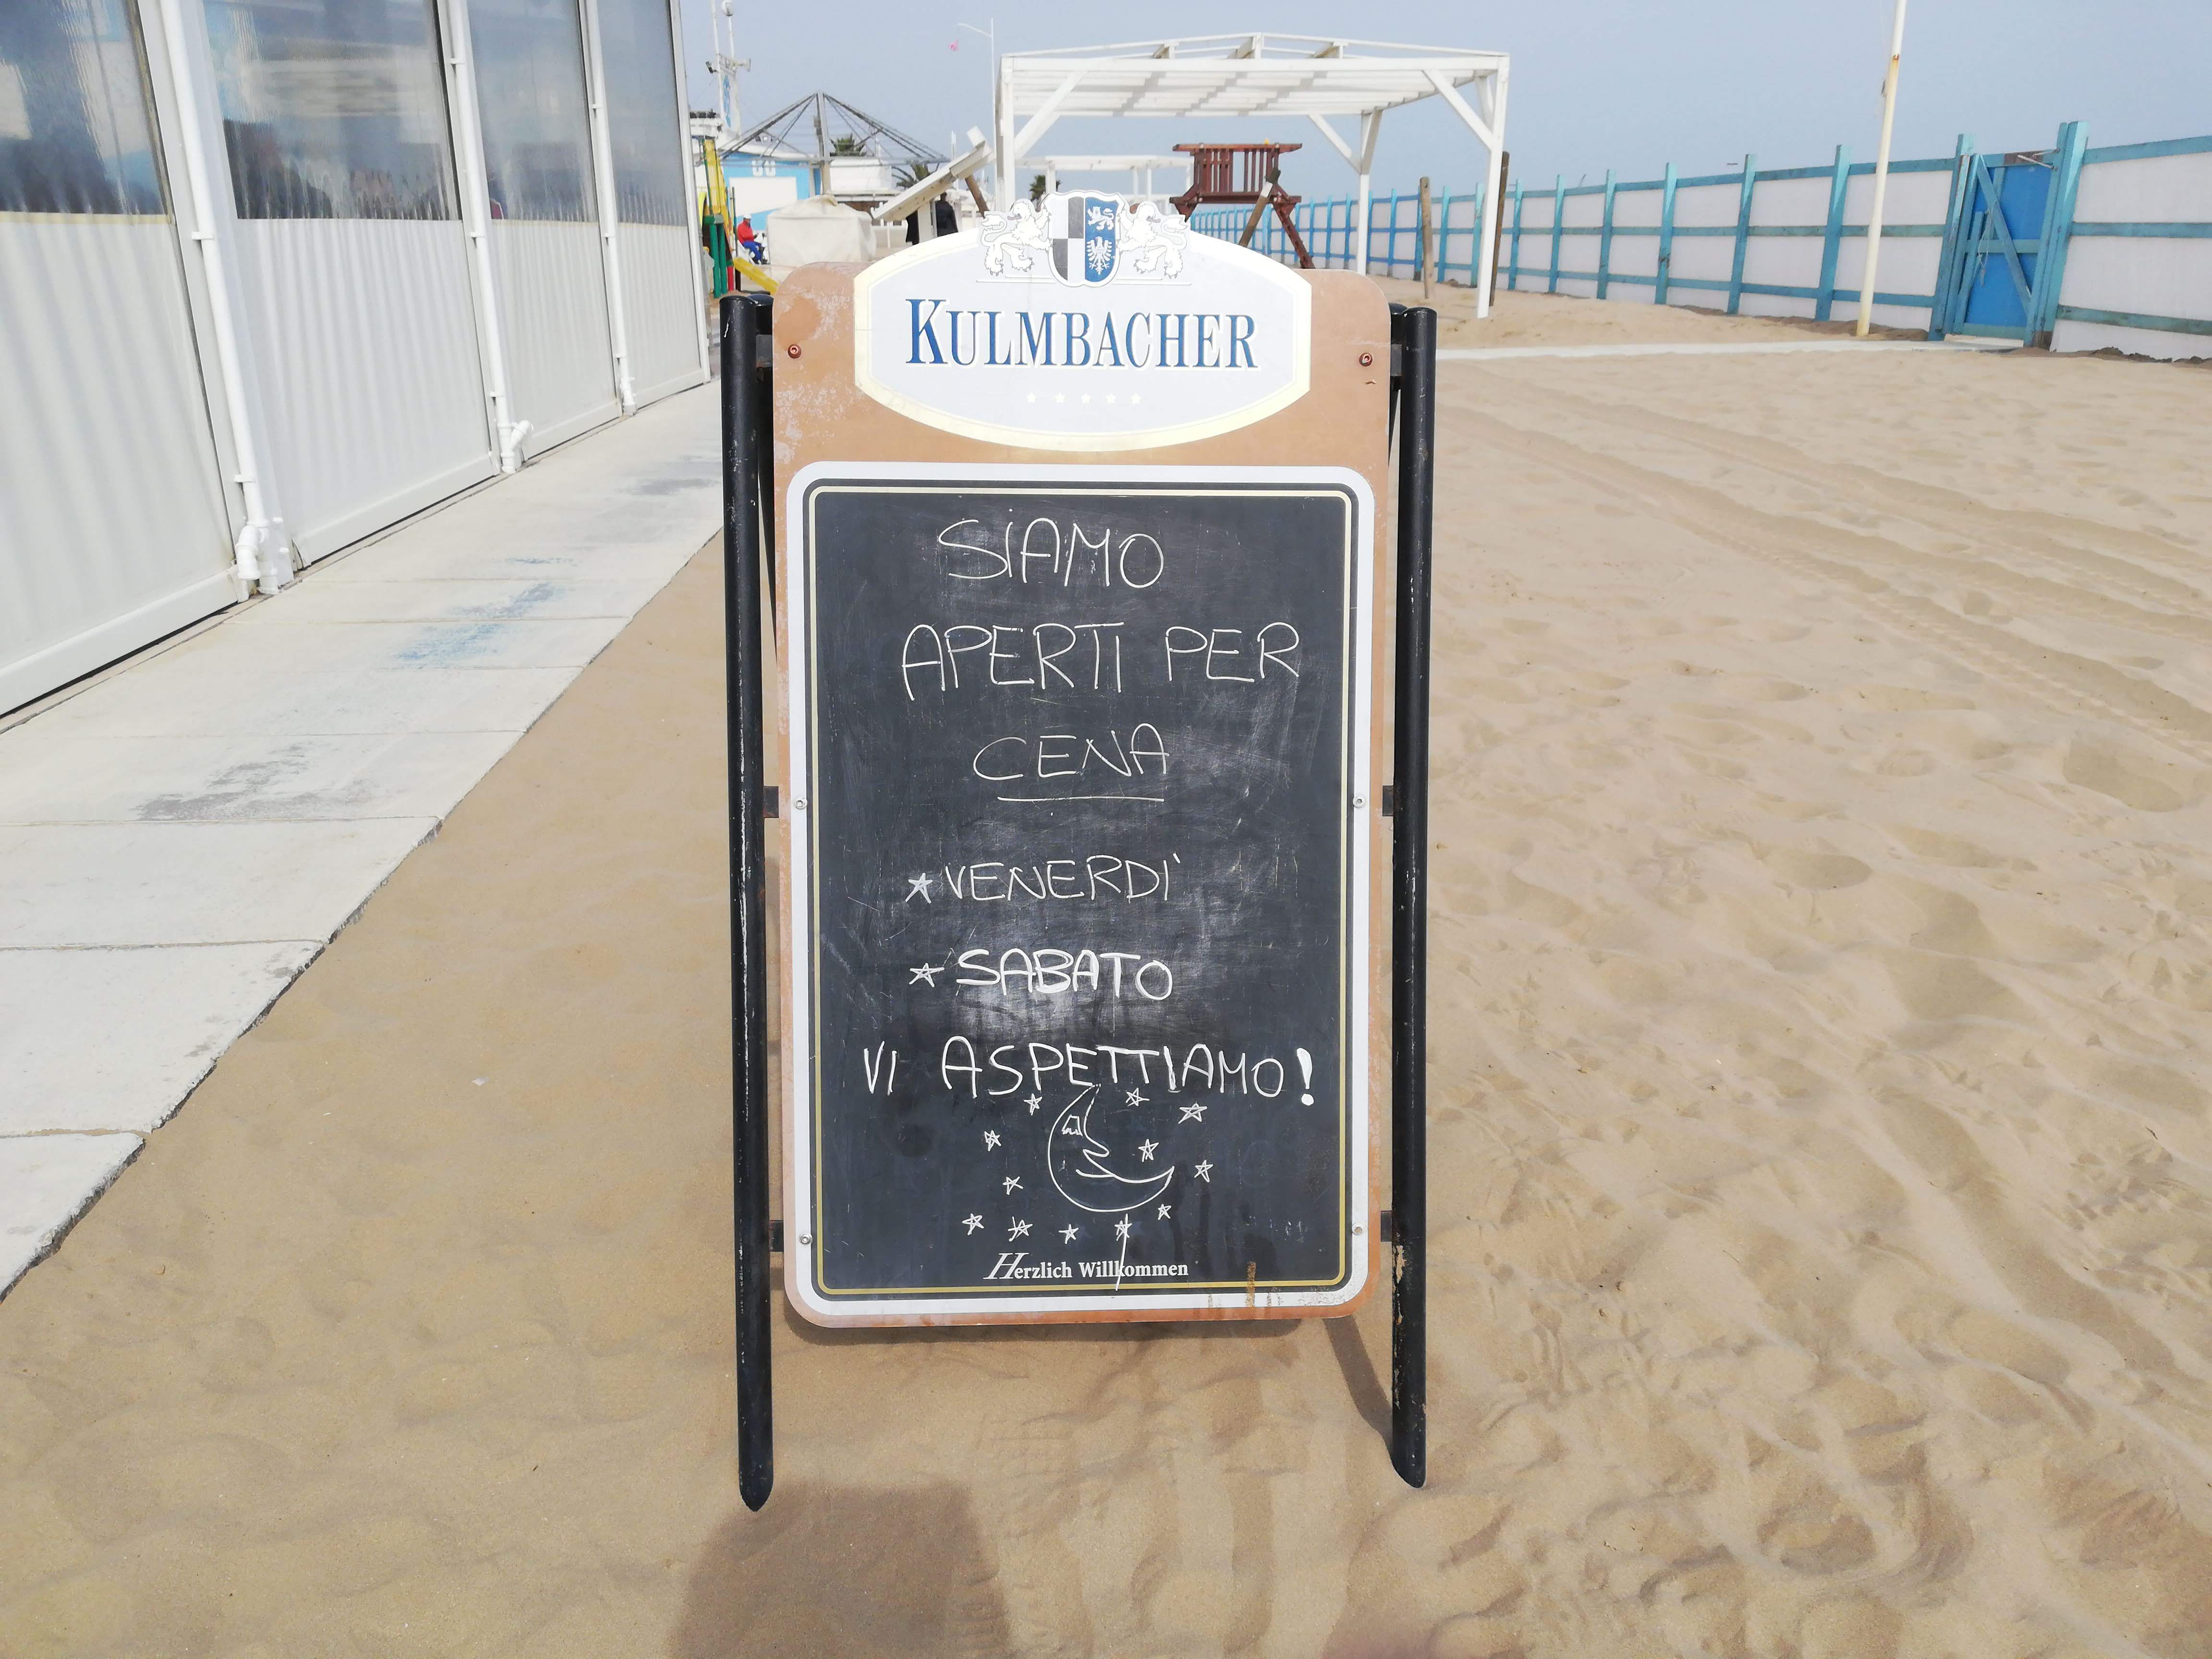 KULMBACHER
SiAMO
APERTI PER
CENA
VENERDI'
SABATO
VI ASPETTIAMO!
Herzlich Willkommen